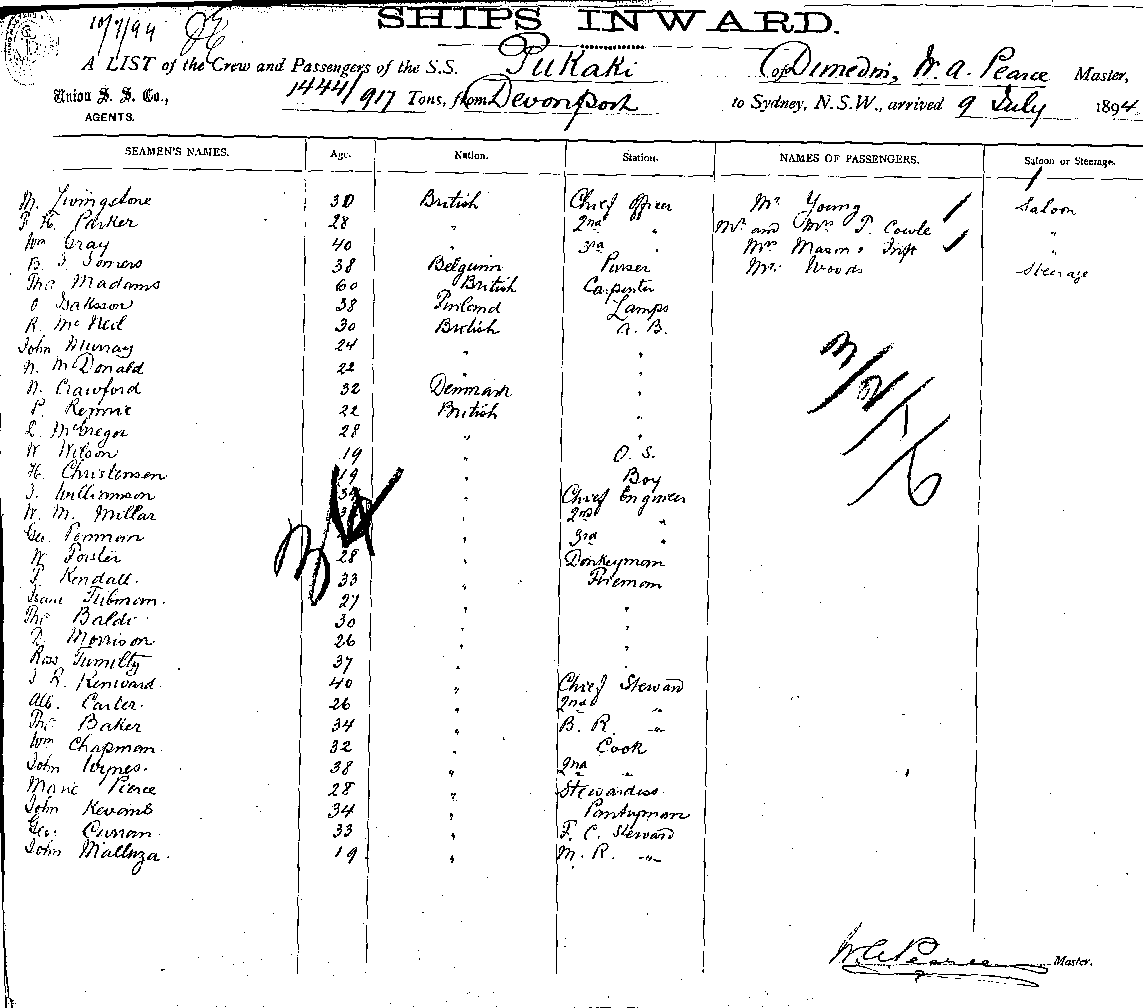 10/7/94
SHIPS INWARD.
A LIST of the Crew and Passengers of the S.S. Pukaki (of Dunedin, W. A. Pearce Master,
Union S. S. Co., AGENTS. 1444/917 Tons, from Devonport to Sydney, N.S.W., arrived 9 July 1894
SEAMEN'S NAMES. Age. Nation. Station. NAMES OF PASSENGERS. Saloon or Steerage.
M. Livingstone 30 British Chief Officer Mr Young Saloon
P H. Parker 28 " 2nd " Mr and Mrs T. Cowle "
Wm Gray 40 " 3rd " Mrs Mason & Inft "
B. J. Somers 38 Belguim Purser Mr Woods Steerage
Tho Madams 60 British Carpenter
O Isaksson 38 Finland Lamps
R. McNeil 30 British A. B.
John Murray 24 " "
N. McDonald 22 " "
N. Crawford 32 Denmark "
P. Rennie 22 British "
McGregor 28 " "
W Wilson 19 " O. S.
H. Christensen 19 " Boy
J. Williamson " Chief Engineer
W. M. Millar " 2nd "
Geo. Penman " 3rd "
W Forster 28 " Donkeyman
Kendall. 33 " Fireman
27 " "
Tho Baldi 30 " "
D. Morrison 26 " "
Ross Tumilty 37 "
J R. Kenward. 40 " Chief Steward
Alb. Carter. 26 " 2nd "
Tho Baker 34 " B. R. "
Wm Chapman 32 " Cook
John 38 " 2nd "
Marie Pierce 28 " Stewardess
John Kevans 34 " Pantryman
Geo. Curran 33 " F. C. Steward
John 19 " M. R. "
W. A. Pearce Master.